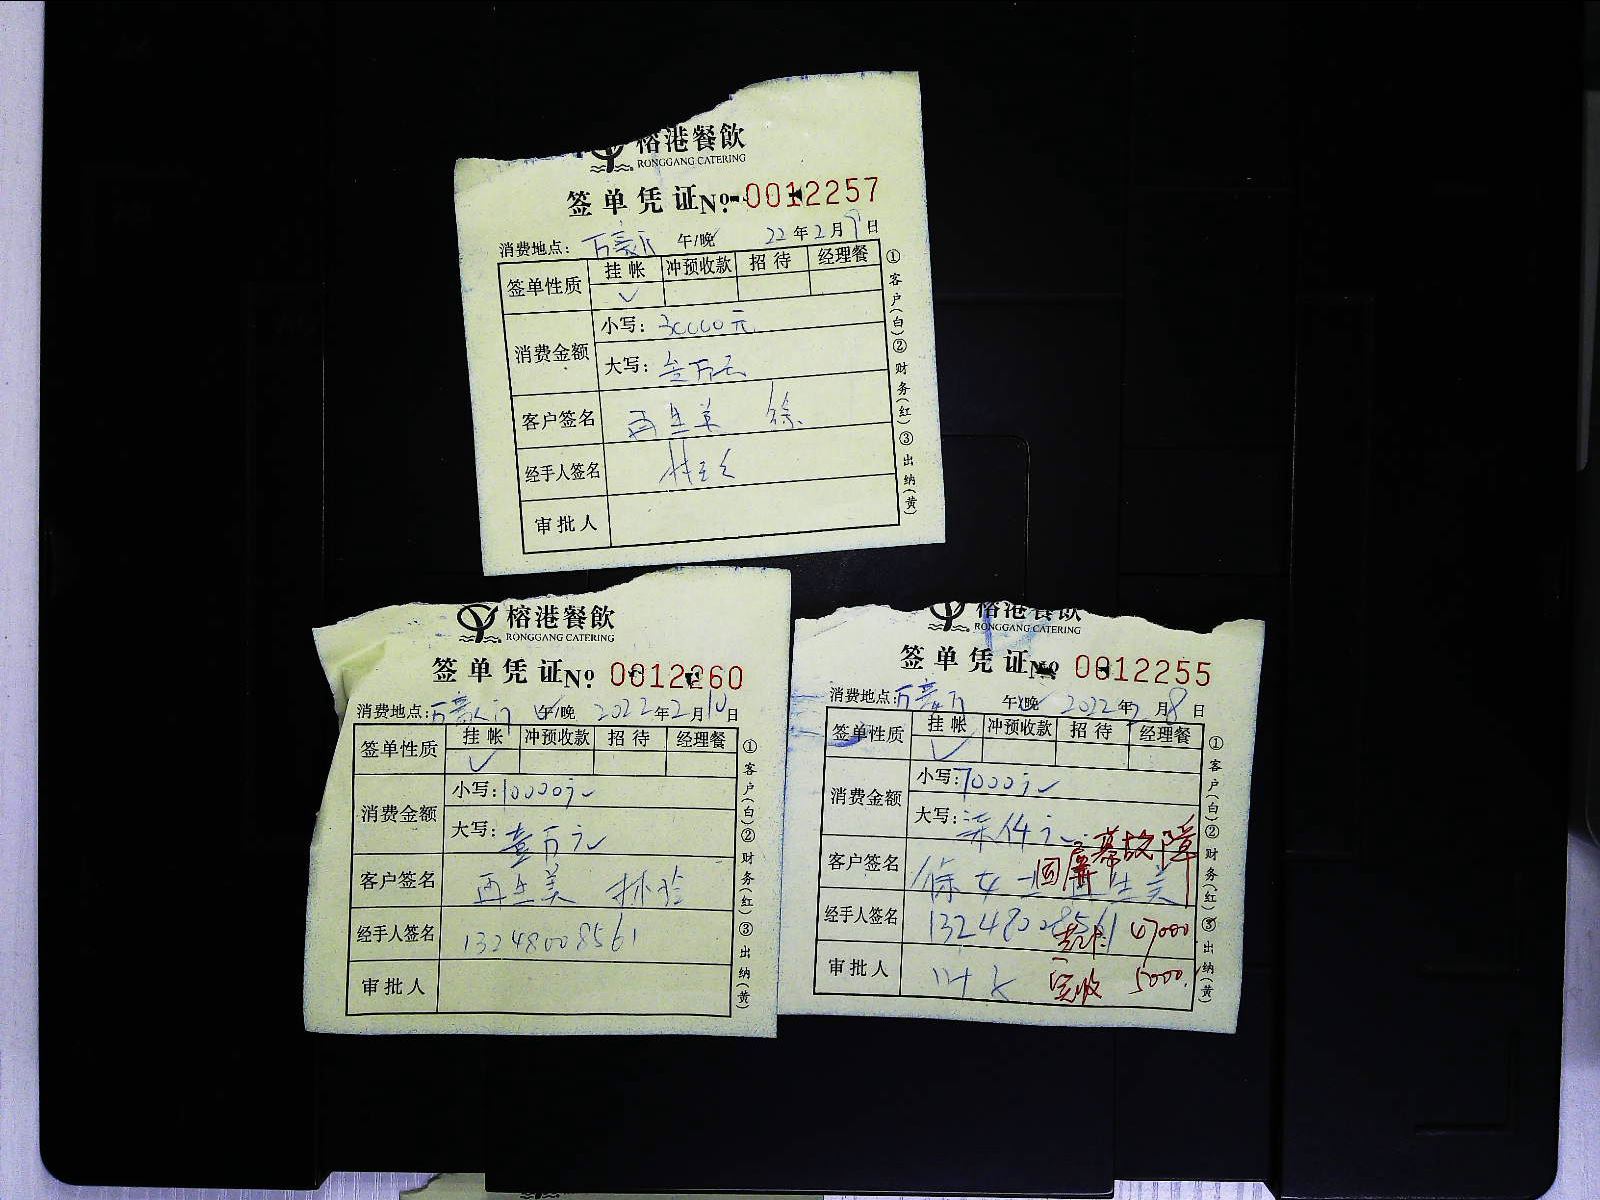 榕港餐飲
RONGGANG CATERING
签单凭证 No 0012257
消费地点: 万豪厅 午/晚 22年2月9日
签单性质 挂帐 冲预收款 招待 经理餐
✓
消费金额 小写: 30000元
大写: 叁万元
客户签名 再生美 徐
经手人签名
审批人
①客户(白)②财务(红)③出纳(黄)
榕港餐飲
RONGGANG CATERING
签单凭证 No 0012260
消费地点: 万豪厅 午/晚 2022年2月10日
签单性质 挂帐 冲预收款 招待 经理餐
✓
消费金额 小写: 10000元
大写: 壹万元
客户签名 再生美 林
经手人签名 13248008561
审批人
①客户(白)②财务(红)③出纳(黄)
榕港餐飲
RONGGANG CATERING
签单凭证 No 0012255
消费地点: 万豪厅 午/晚 2022年2月8日
签单性质 挂帐 冲预收款 招待 经理餐
✓
消费金额 小写: 7000元
大写: 柒仟元
因屏幕故障
客户签名 徐女士 再生美
经手人签名 13248008561 47000
审批人 叶 实收 5000.
①客户(白)②财务(红)③出纳(黄)